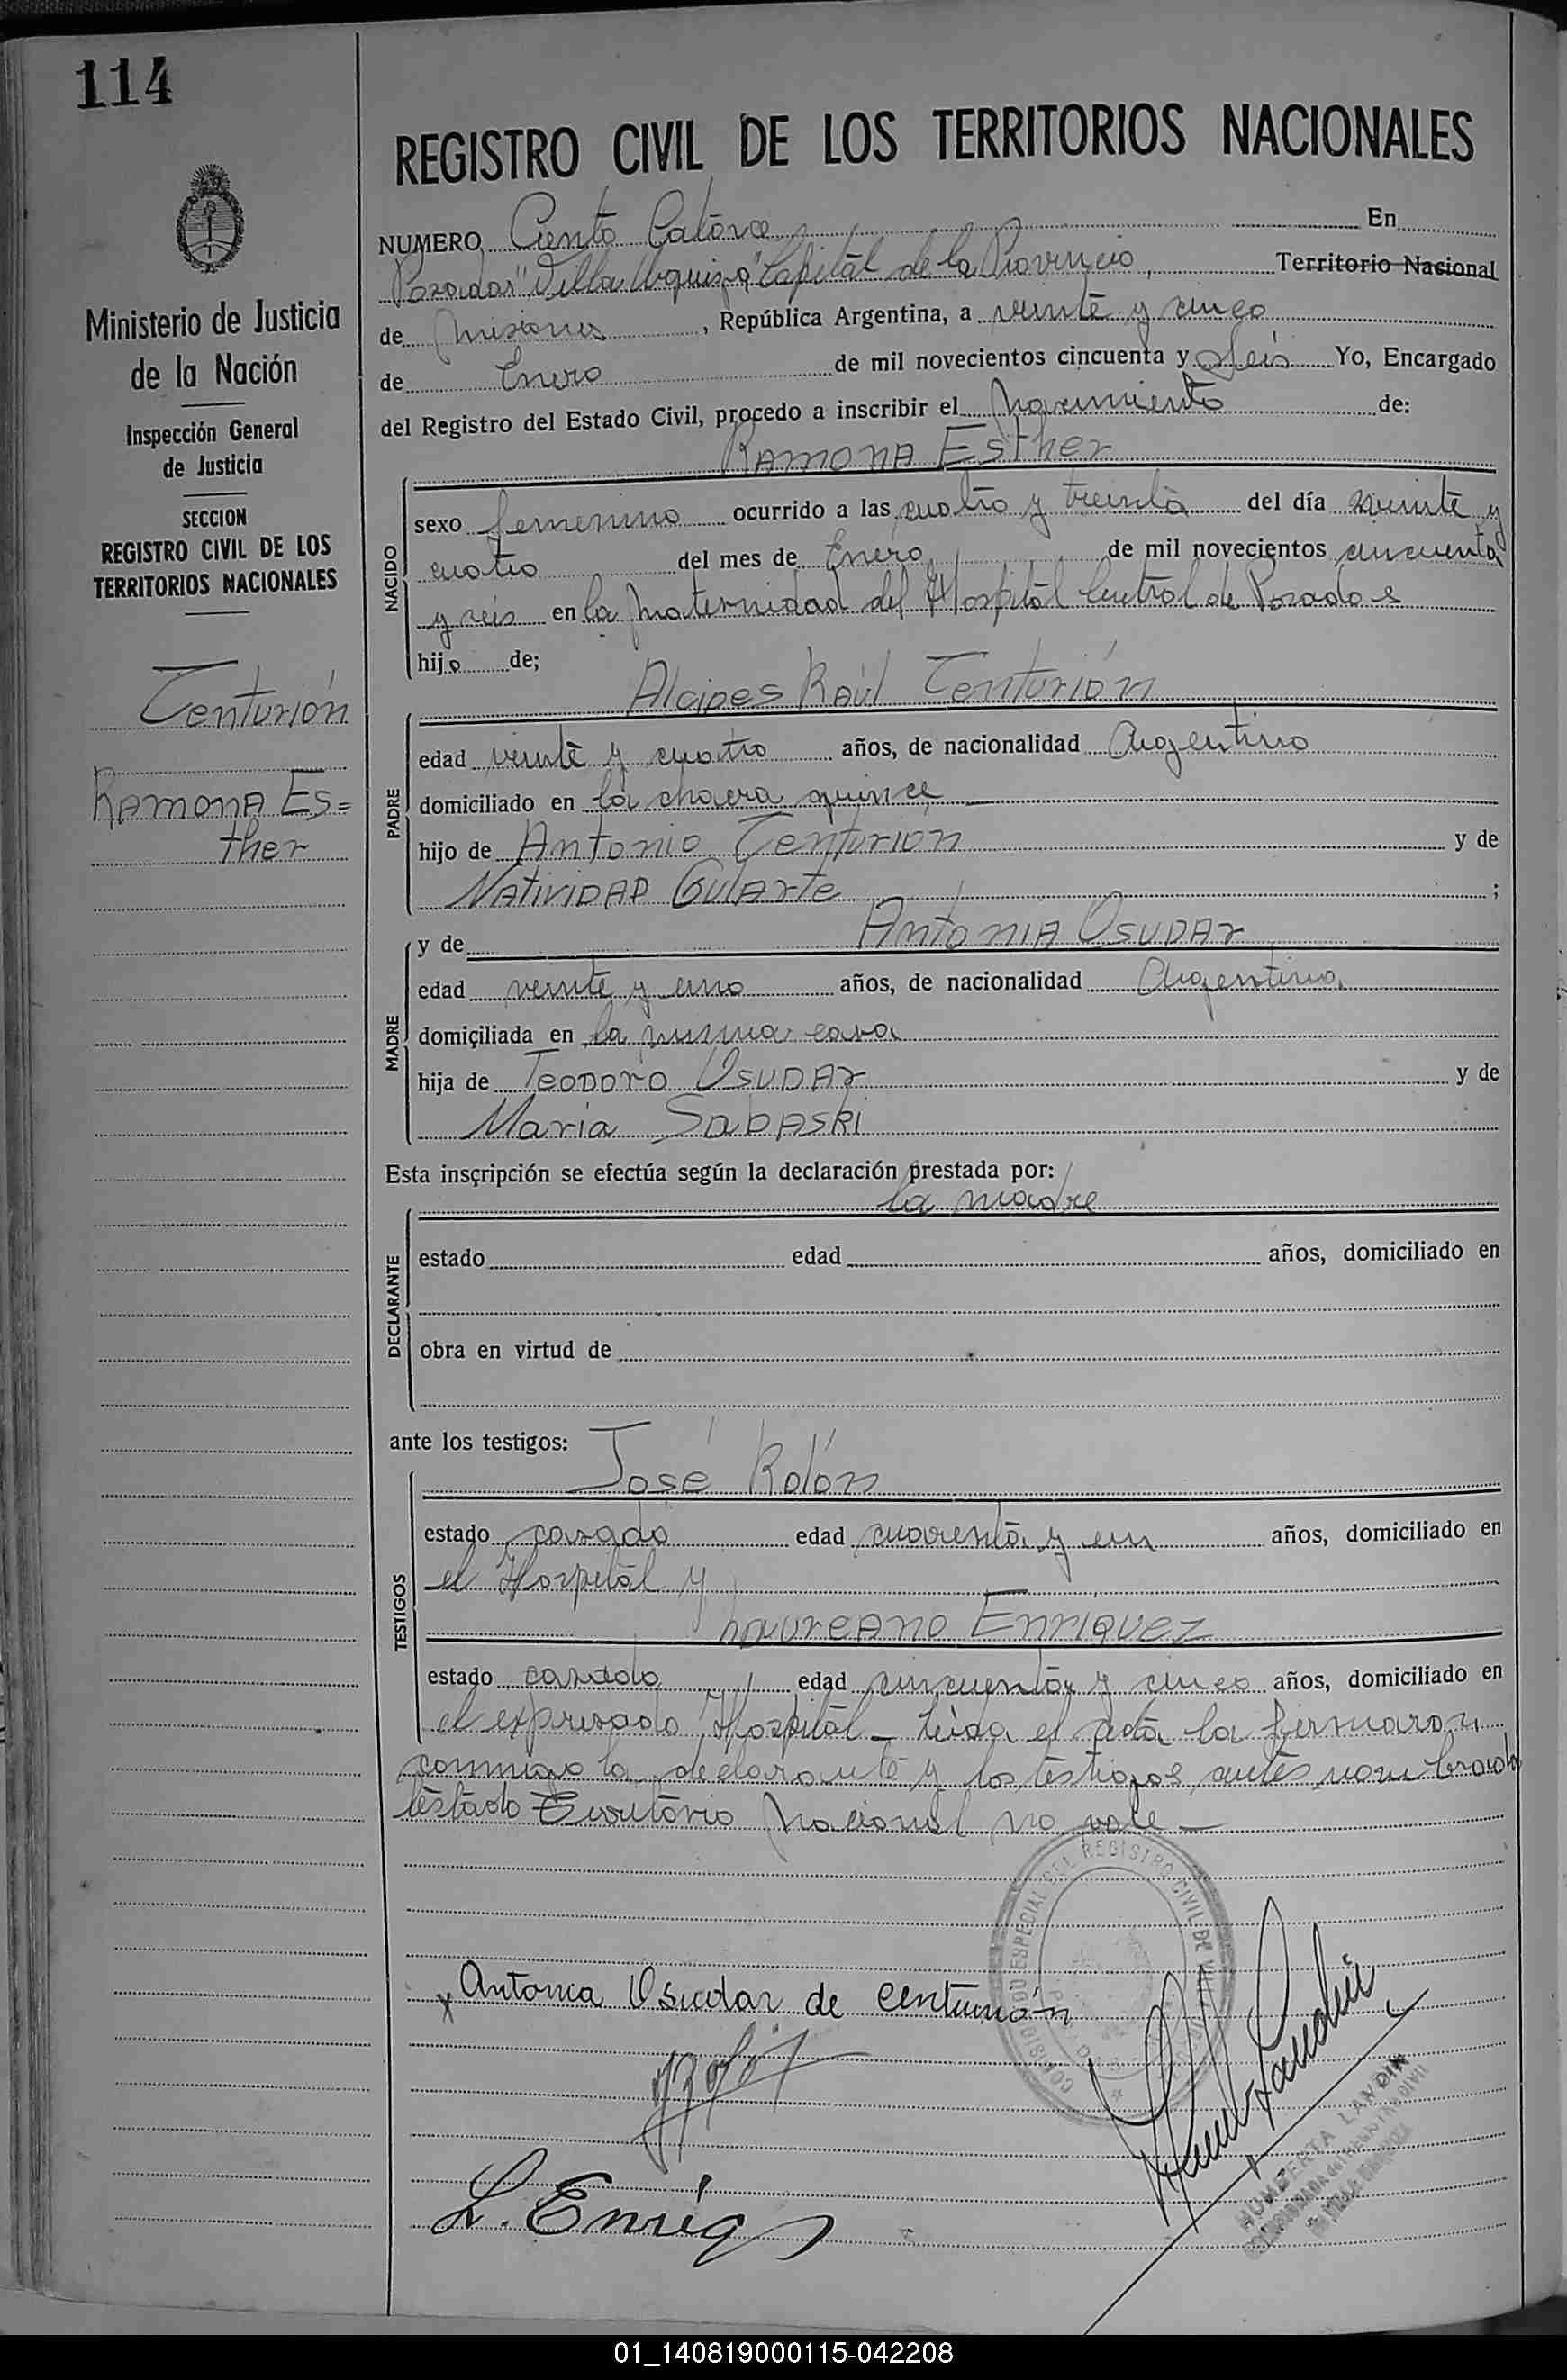 114
REGISTRO CIVIL DE LOS TERRITORIOS NACIONALES
NUMERO Ciento Catorce En
Posadas "Villa Urquiza" Capital de la Provincia, Territorio Nacional
de Misiones, República Argentina, a veinte y cinco
de Enero de mil novecientos cincuenta y seis Yo, Encargado
del Registro del Estado Civil, procedo a inscribir el nacimiento de:
Ramona Esther
NACIDO
sexo femenino ocurrido a las cuatro y treinta del día veinte y
cuatro del mes de Enero de mil novecientos cincuenta
y seis en la Maternidad del Hospital Central de Posadas
hijo de;
Alcipes Raúl Centurión
PADRE
edad veinte y cuatro años, de nacionalidad Argentino
domiciliado en la chacra quince
hijo de Antonio Centurión y de
Natividad Gularte ;
y de Antonia Osudar
MADRE
edad veinte y uno años, de nacionalidad Argentina
domiciliada en la misma casa
hija de Teodoro Osudar y de
Maria Sabaski
Esta inscripción se efectúa según la declaración prestada por:
la madre
DECLARANTE
estado edad años, domiciliado en
obra en virtud de
ante los testigos:
José Rolón
TESTIGOS
estado casado edad cuarenta y un años, domiciliado en
el Hospital y
Laureano Enriquez
estado casado edad cincuenta y cinco años, domiciliado en
el expresado Hospital - Leida el acta la firmaron
conmigo la declarante y los testigos antes nombrados
testado Territorio Nacional no vale -
Antonia Osudar de Centurión
L. Enriq
HUMBERTA LANDIN
Ministerio de Justicia
de la Nación
Inspección General
de Justicia
SECCION
REGISTRO CIVIL DE LOS
TERRITORIOS NACIONALES
Centurión
Ramona Es=
ther
01_140819000115-042208